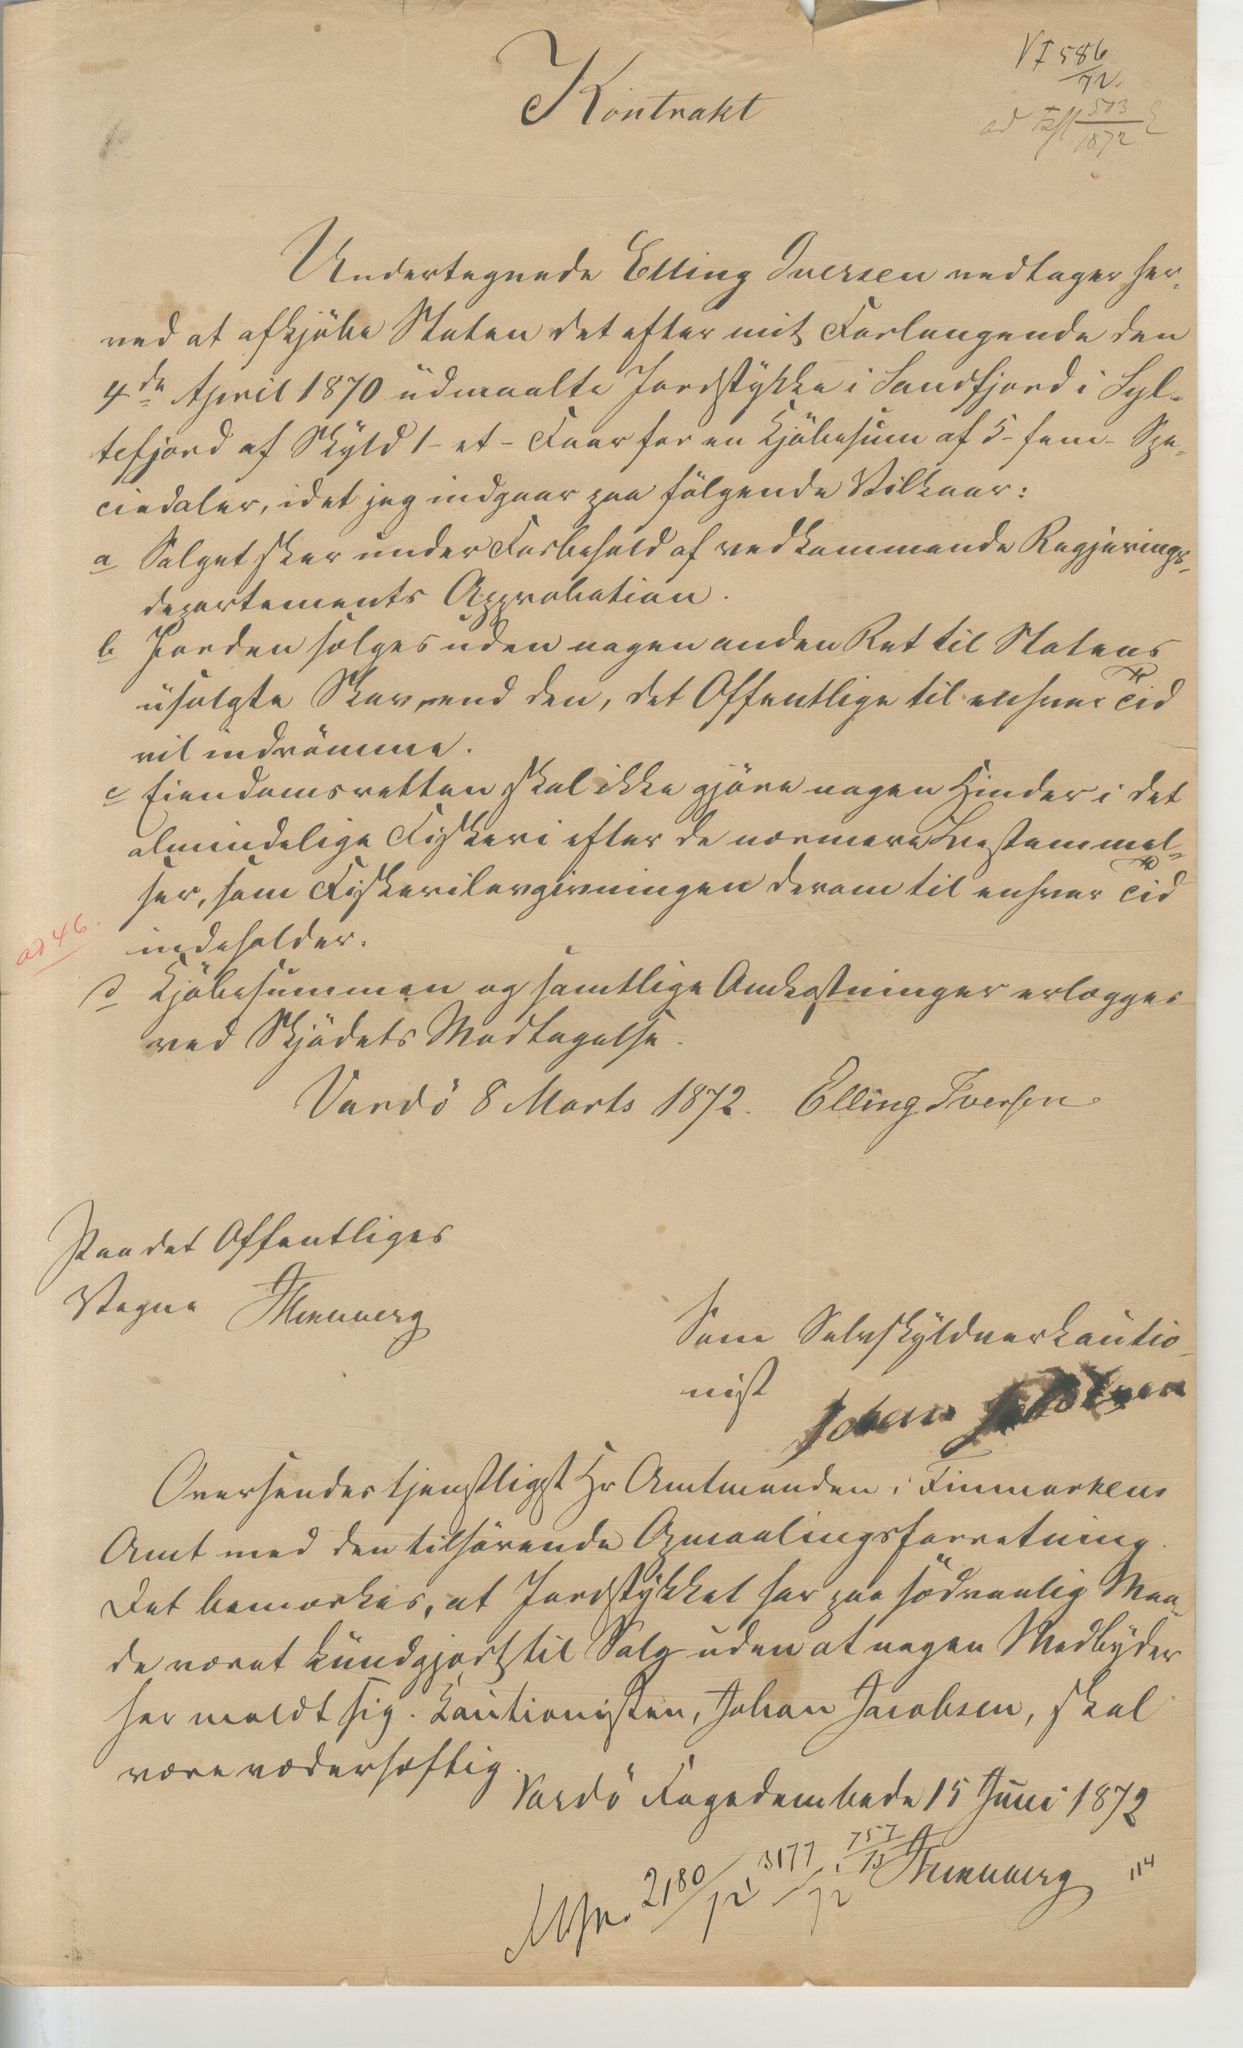 VI 586
72.
ad 503
1872
Kontrakt
Undertegnede Elling Iversen vedtager her-
ved at afkjøbe Staten det efter mit Forlangende den
4de April 1870 udmaalte Jordstykke i Sandfjord i Syl-
tefjord af Skyld 1- et - Faar for en Kjøbesum af 5- fem - Spe-
ciedaler, idet jeg indgaar paa følgende Vilkaar:
a Salget sker under Forbehold af vedkommende Regjerings-
departements Approbation.
b Jorden sælges uden nogen anden Ret til Statens
usolgte Skov, end den, det Offentlige til enhver Tid
vil indrømme.
c Eiendomsretten skal ikke gjøre nogen Hinder i det
almindelige Fiskeri efter de nærmere Bestemmel-
ser, som Fiskerilovgivningen derom til enhver Tid
indeholder.
ad 46.
d Kjøbesummen og samtlige Omkostninger erlægges
ved Skjødets Modtagelse.
Vardö 8 Marts 1872. Elling Iversen.
Paa det Offentliges
Vegne
Som Selvskyldnerkautio-
nist
Johan Jacobsen
Oversendes tjenstligst Hr Amtmanden i Finmarkens
Amt med den tilhørende Opmaalingsforretning.
Det bemærkes, at Jordstykket har paa sødvanlig Maa-
de været kundgjort til Salg uden at nogen Medbyder
har meldt sig. Kautionisten, Johan Jacobsen, skal
være vederhæftig.
Vardö Fogedembede 15 Juni 1872
2180/72 3177/72 757/73
114